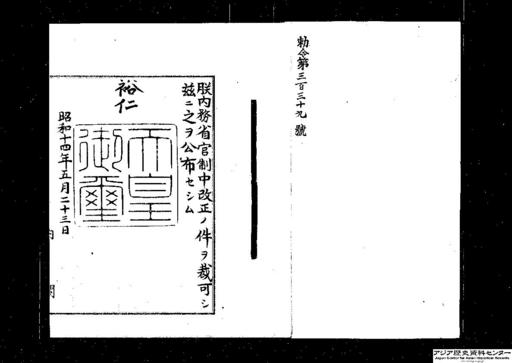 勅令第三百三十九號
朕内務省官制中改正ノ件ヲ裁可シ
茲ニ之ヲ公布セシム
裕仁
天皇
御璽
昭和十四年五月二十三日
内 閣
アジア歴史資料センター
Japan Center for Asian Historical Records